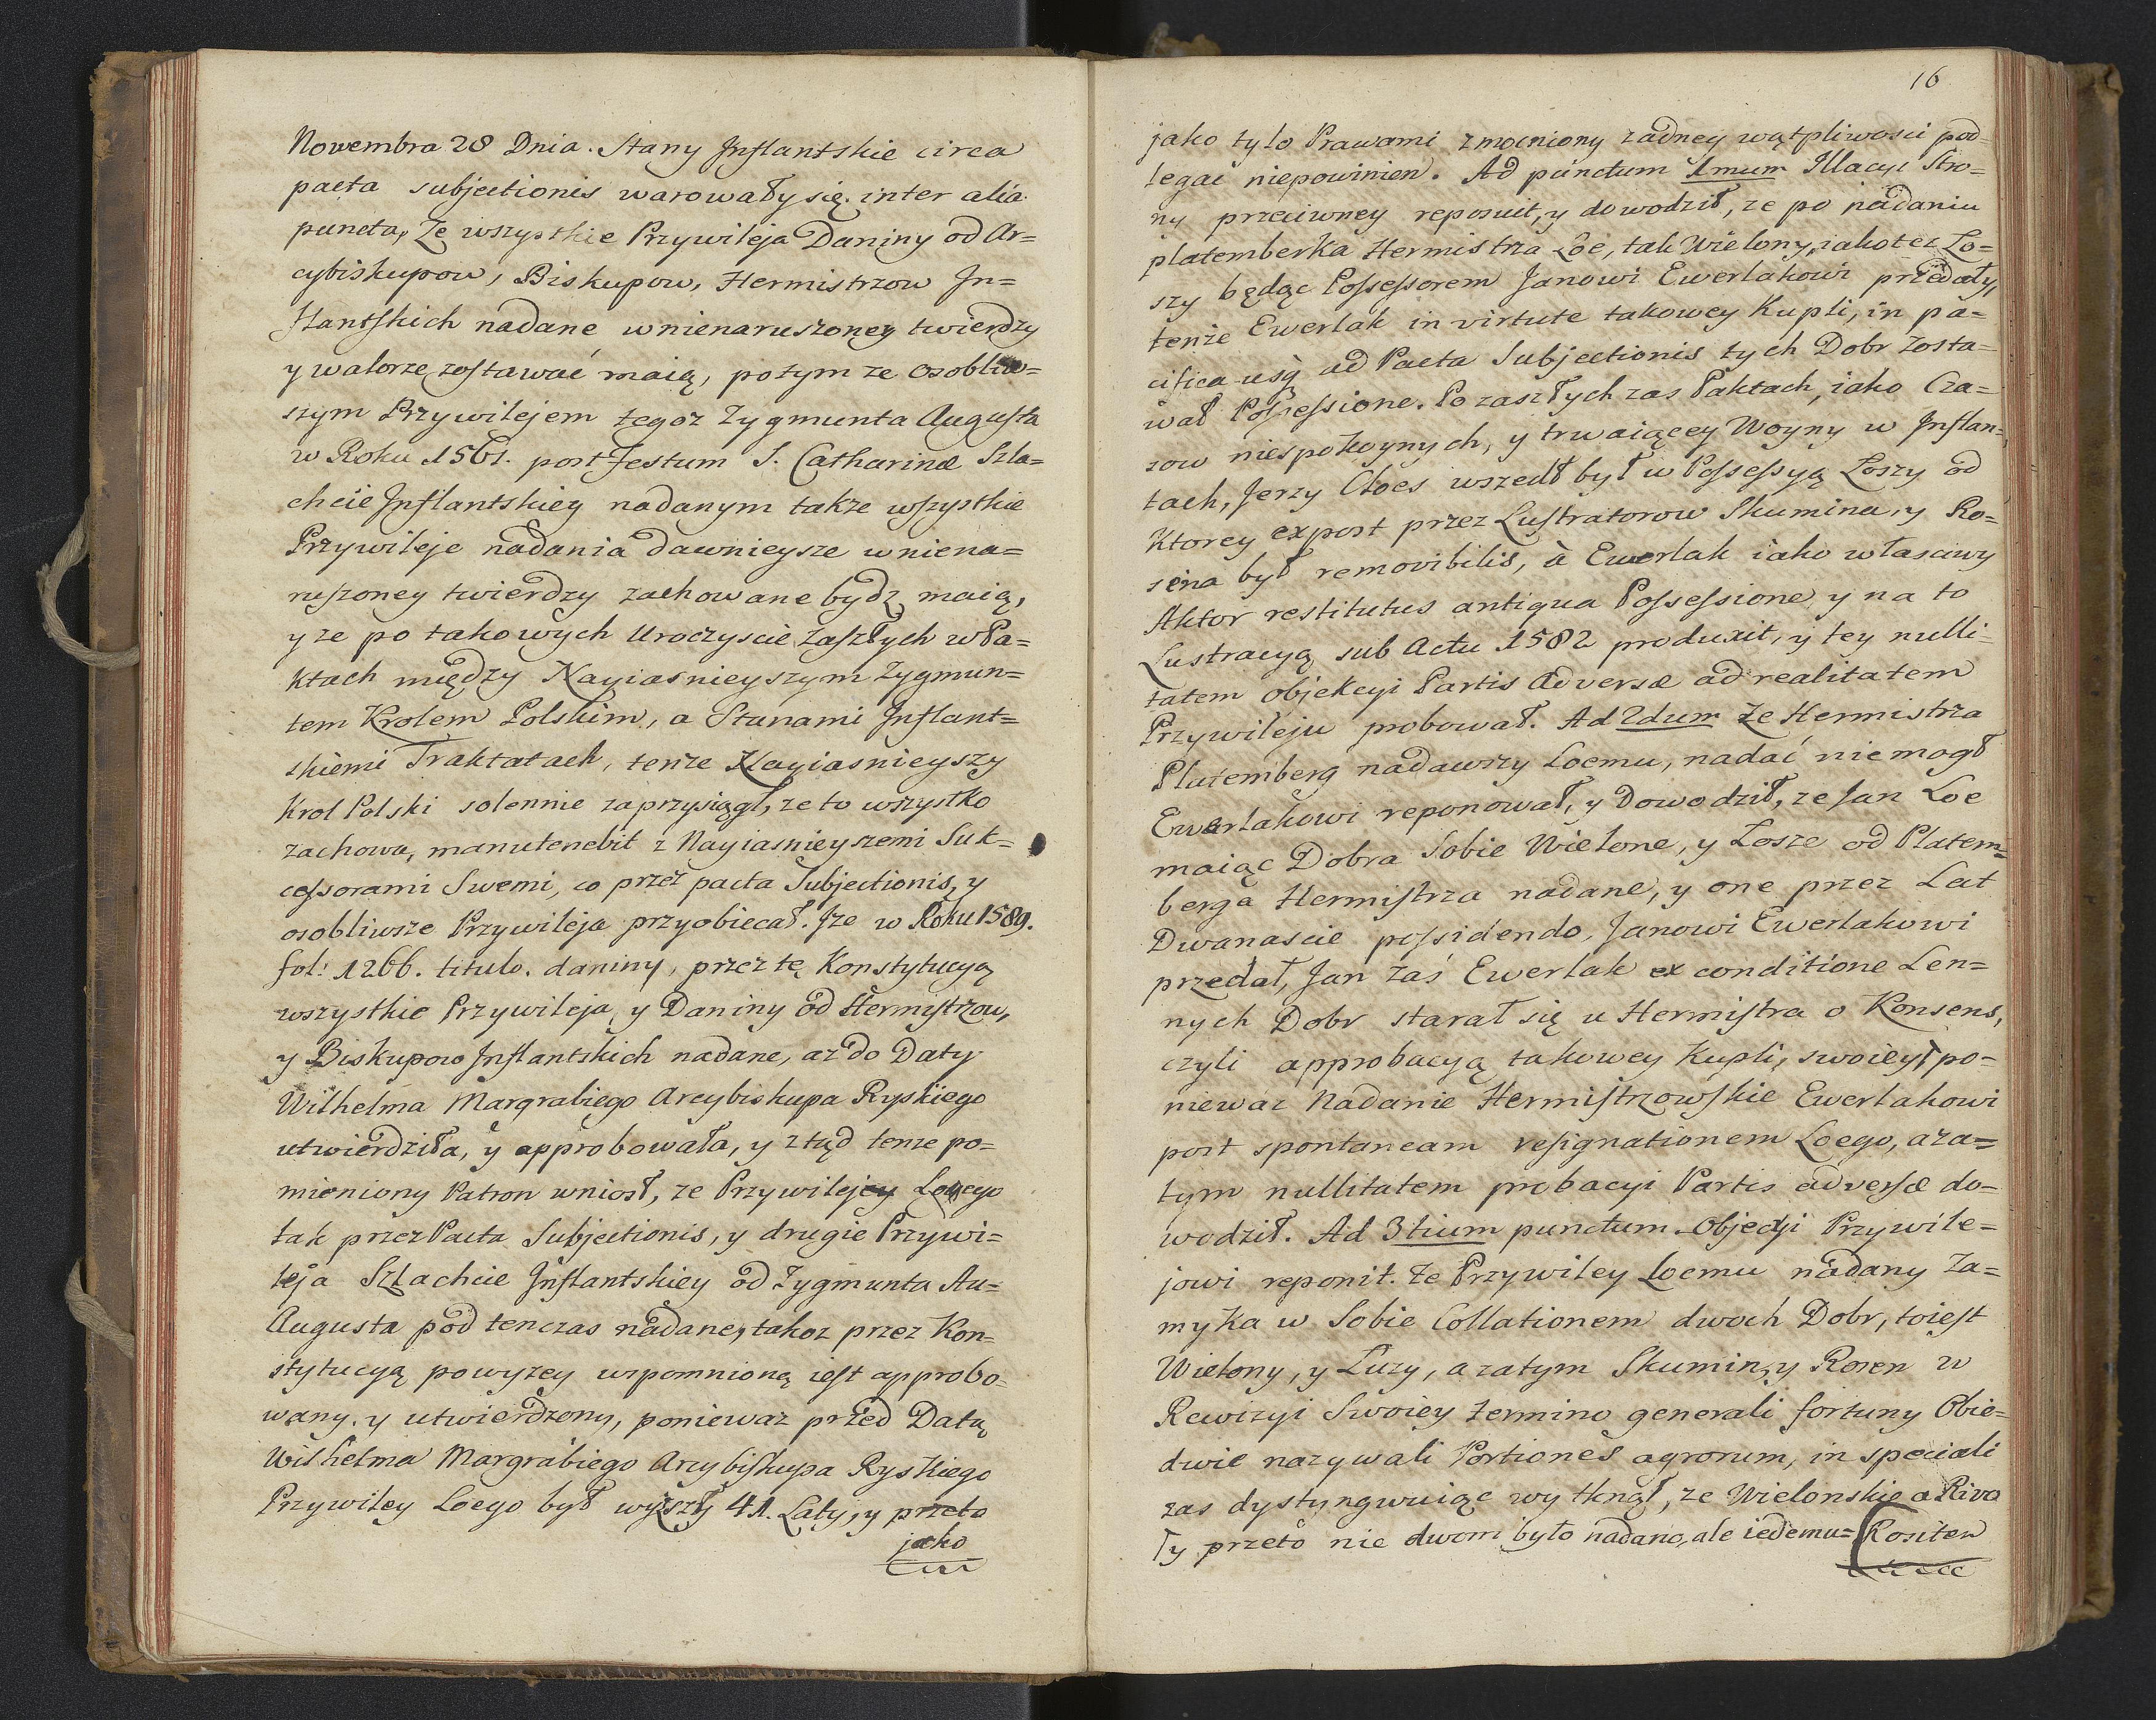 Novembra 28 Dnia. Stany Inflantskie circa
pacta subjectionis warowały się. inter alia
puncta, Ze wszystkie Przywileja Daniny od Ar=
cybiskupow, Biskupow, Hermistrzow In=
flantskich nadane wnienaruszoney twierdzy
y walorze zostawać maią, potym ze osobliw=
szym Przywilejem tegoz Zygmunta Augusta
w Roku 1561. post Festum S. Catharinæ Szla=
chcie Inflantskiey nadanym takze wszystkie
Przywileje nadania dawnieysze w niena=
ruszoney twierdzy zachowane bydz maią,
y ze po takowych Uroczyscie zaszłych w Pa=
ktach między Nayiasnieyszym Zygmun=
tem Krolem Polskim, a Stanami Inflant=
skiemi Traktatach, tenze Nayiasnieyszy
Krol Polski solennie zaprzysiągł, ze to wszystko
zachowa, manutenebit z Nayiasnieyszemi Suk=
cessorami Swemi, co przez pacta Subjectionis, y
osobliwsze Przywileja przyobiecał. Ize w Roku 1589.
fol: 1266. titulo. daniny, przez tę Konstytucyą
wszystkie Przywileja y Daniny od Hermistrzow,
y Biskupow Inflantskich nadane, az do Daty
Wilhelma Margrabiego Arcybiskupa Ryskiego
utwierdziła, y approbowała, y ztąd tenze po=
mieniony Patron wniosł, ze Przywiley Loego
tak przez Pacta Subjectionis, y drugie Przywi=
leja Szlachcie Inflantskiey od Zygmunta Au=
Augusta pod tenczas nadane, takoz przez Kon=
stytucyą powyzey wspomnioną iest approbo=
wany. y utwierdzony, poniewaz przed Datą
Wilhelma Margrabiego Arcybiskupa Ryskiego
Przywiley Loego był wyszły 41. Laty, y przeto
jako
16
jako tylo Prawami zmocniony zadney wątpliwosci pod
legać niepowinien. Ad punctum 1mum Illacyi Stro=
ny przeciwney reposuit, y dowodził, ze po nadaniu
platemberka Hermistrza Loe, tak Wielony, iakotez Lo=
szy będąc Possessorem Janowi Ewerlakowi przedały,
tenze Ewerlak in virtute takowey Kupli, in pa=
cifica usq ad Pacta Subjectionis tych Dobr zosta=
wał Possessione. Po zaszłych zas Paktach, iako Cza=
sow niespokoynych, y trwaiącey Woyny w Inflan=
tach, Jerzy Cloes wszedł był w Possessyą Loszy od
Ktorey expost przez Lustratorow Skumina, y Ro=
sena był removibilis, à Ewerlak iako własciwy
Aktor restitutus antiqua Possessione y na to
Lustracyą sub Actu 1582 produxit, y tey nulli=
tatem objekcyi Partis Adversæ ad realitatem
Przywileju probował. Ad 2dum Ze Hermistrza
Plutemberg nadawszy Loemu, nadać nie mogł
Ewerlakowi reponował, y Dowodził, ze Jan Loe
maiąc Dobra Sobie Wielone, y Losze od Platem=
berga Hermistrza nadane, y one przez Lat
Dwanascie possidendo, Janowi Ewerlakowi
przedał, Jan zaś Ewerlak ex conditione Len=
nych Dobr starał się u Hermistra o Konsens,
czyli approbacyą takowey Kupli, swoiey po=
niewaz Nadanie Hermistrzowskie Ewerlakowi
post spontaneam resignationem Loego, a za=
tym nullitatem probacyi Partis adversæ do=
wodził. Ad 3tium punctum Objecyi Przywile=
jowi reponit. Ze Przywiley Loemu nadany Za=
myka w Sobie Collationem dwoch Dobr, toiest
Wielony, y Luzy, a zatym Skumin, y Rosen w
Rewizyi Swoiey termino generali fortuny Obie=
dwie nazywali Portiones agrorum, in speciali
zas dystyngwuiąc wytknął, ze Wielonskie a Riva
y przeto nie dwom było nadano, ale iedemu= Rositen